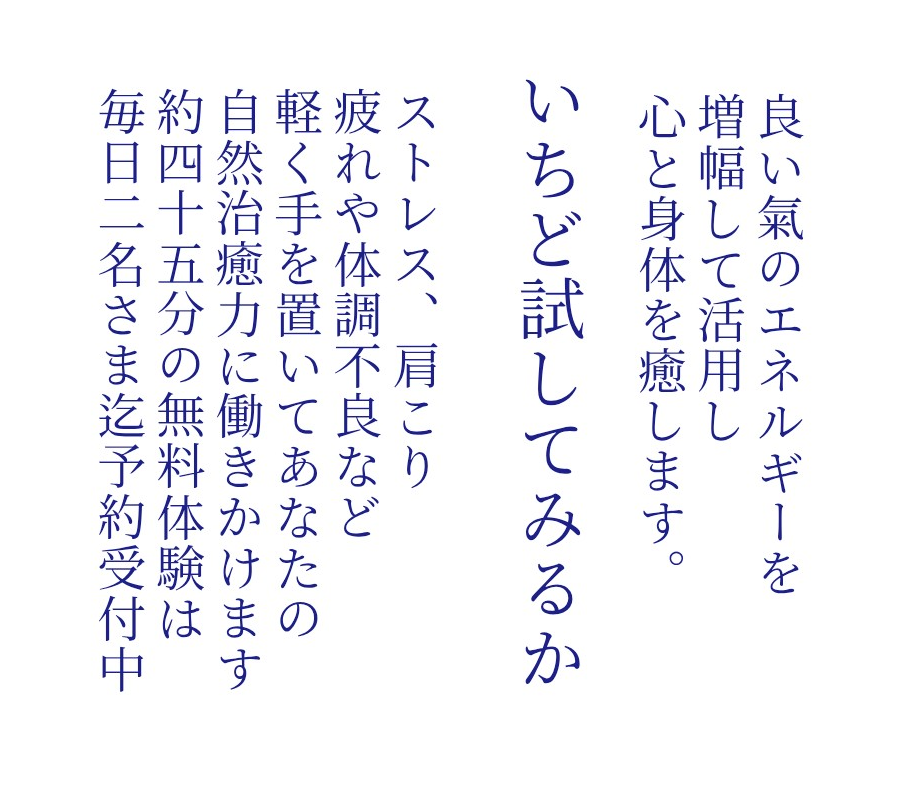 良い氣のエネルギーを
増幅して活用し
心と身体を癒します。
いちど試してみるか
ストレス、肩こり
疲れや体調不良など
軽く手を置いてあなたの
自然治癒力に働きかけます
約四十五分の無料体験は
毎日二名さま迄予約受付中